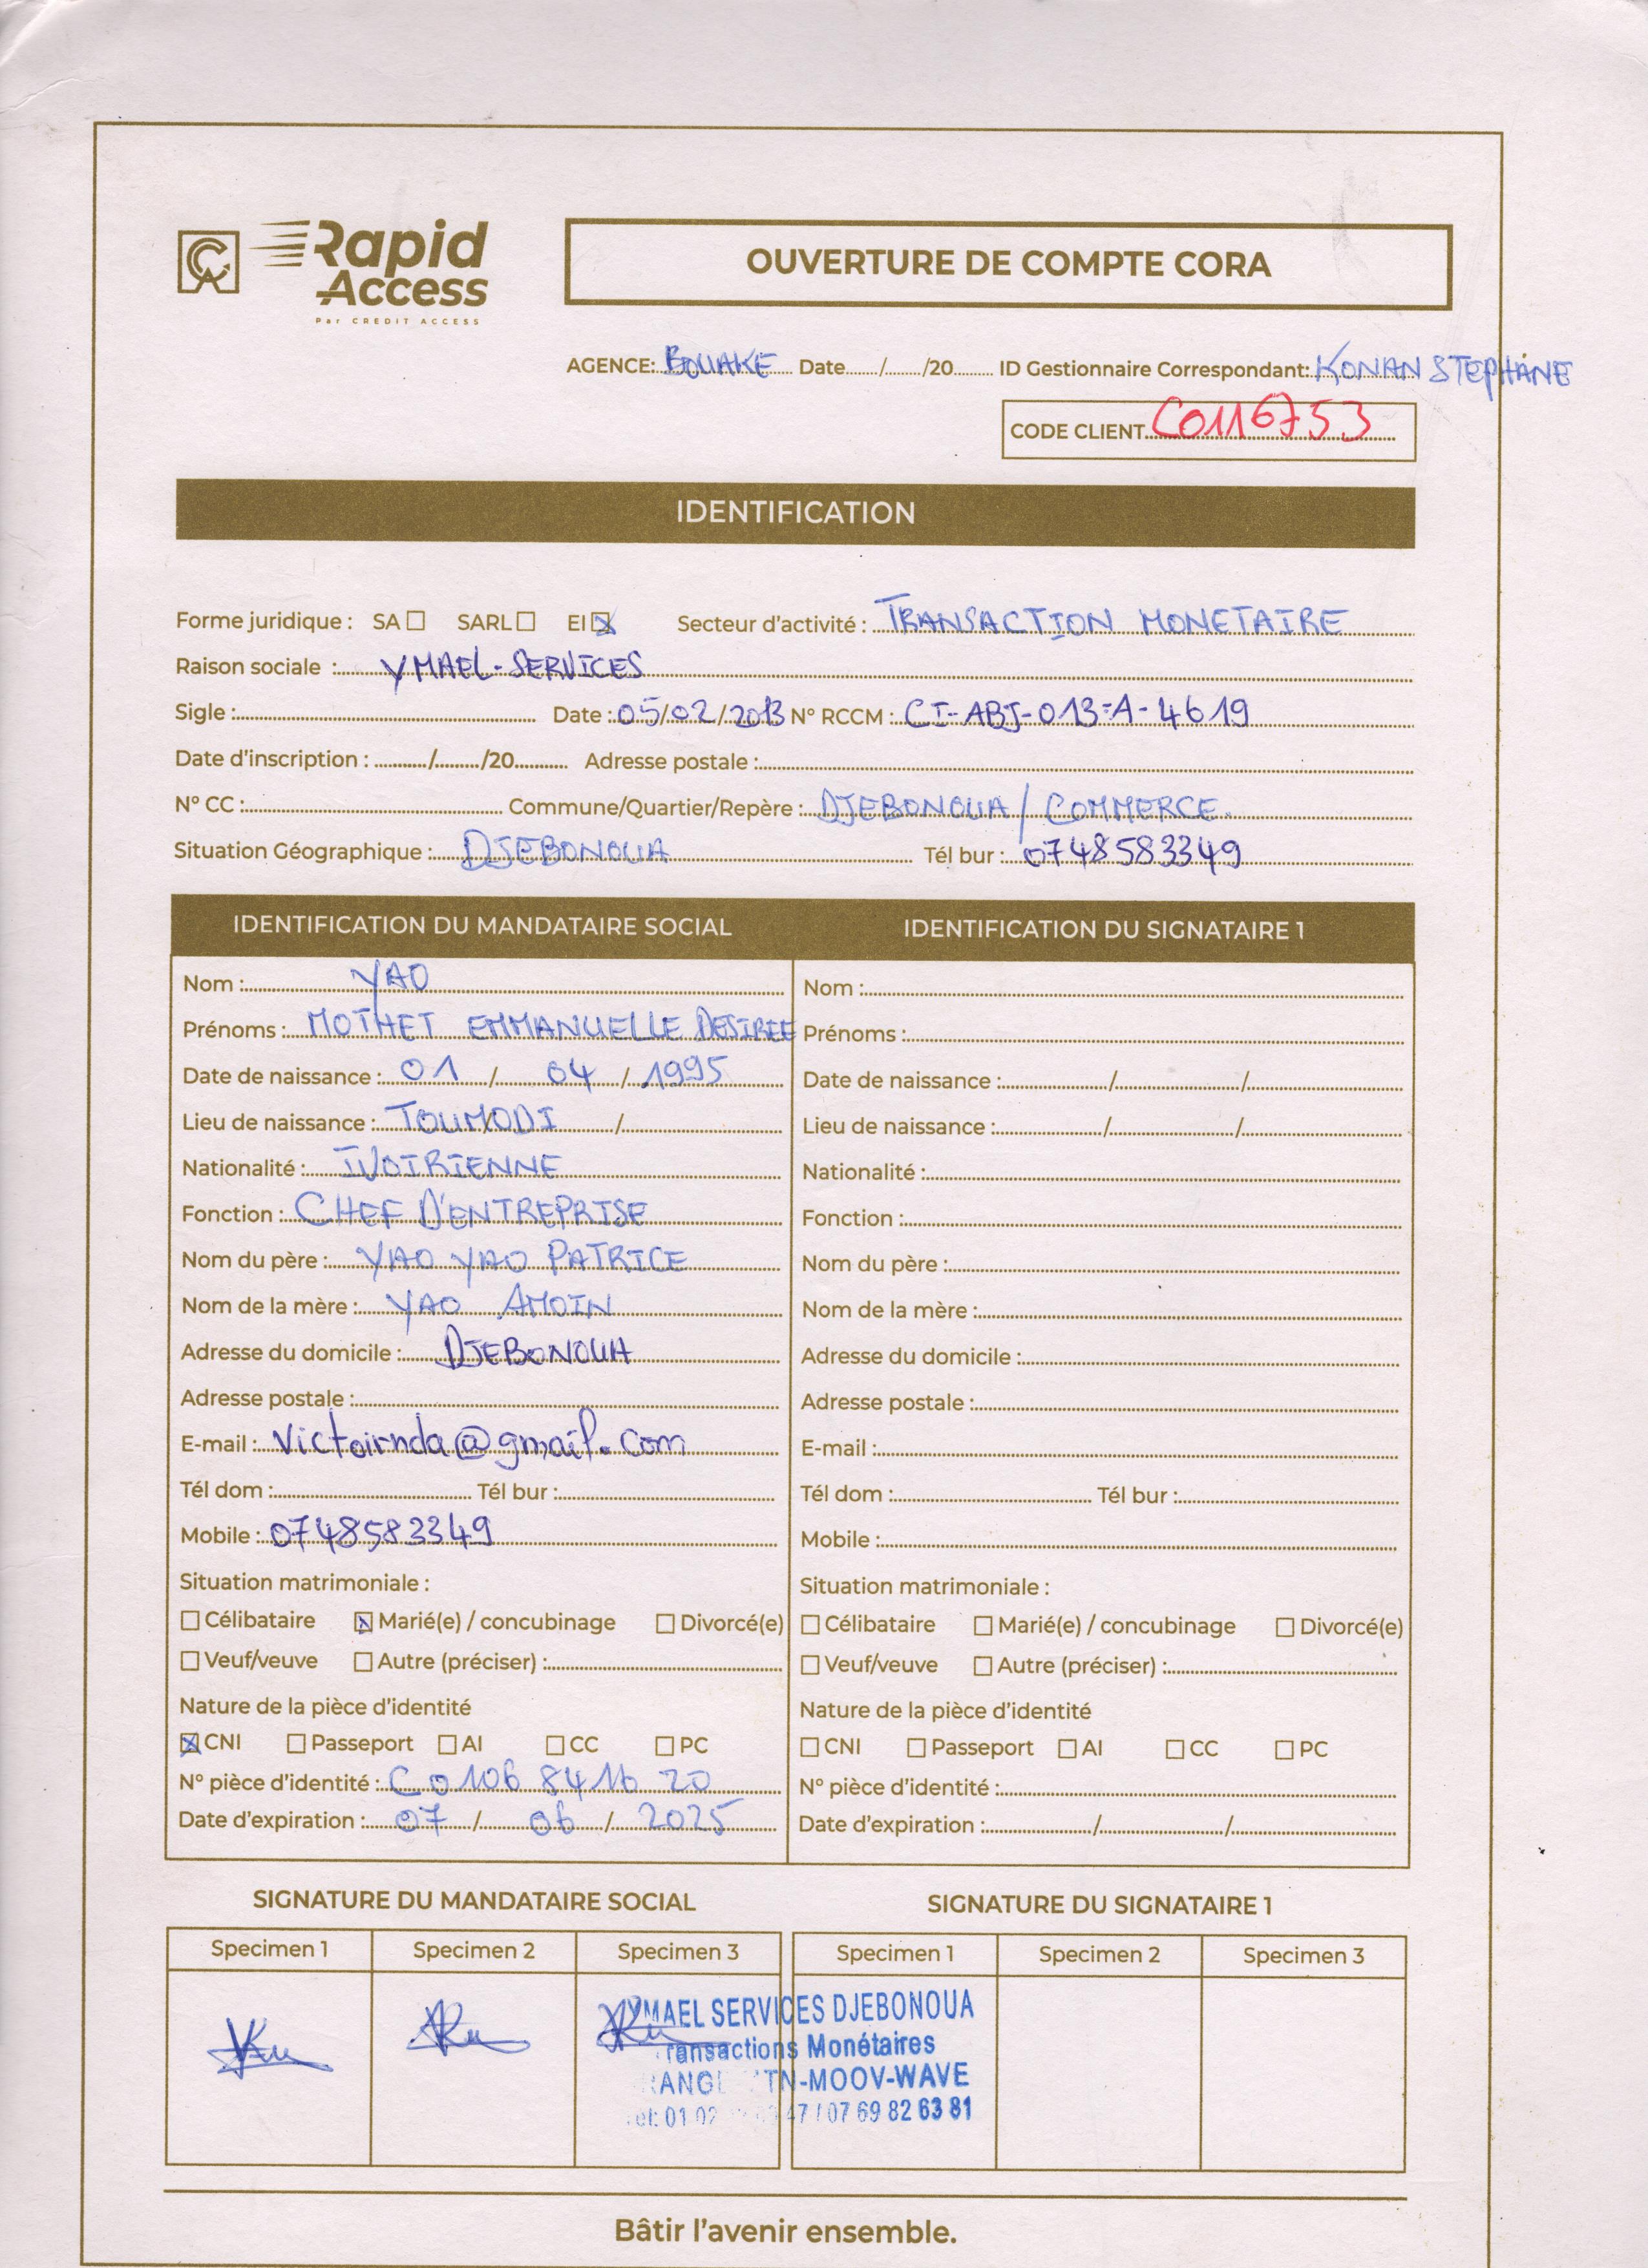 CA Rapid Access
Par CREDIT ACCESS
OUVERTURE DE COMPTE CORA
AGENCE: BOUAKE Date....../....../20...... ID Gestionnaire Correspondant: KONAN STEPHANE
CODE CLIENT C0116753
IDENTIFICATION
Forme juridique : SA☐ SARL☐ EI☒ Secteur d'activité : TRANSACTION MONETAIRE
Raison sociale : YMAEL-SERVICES
Sigle : Date : 05/02/2013 N° RCCM : CI-ABJ-013-A-4619
Date d'inscription : ....../....../20...... Adresse postale :
N° CC : Commune/Quartier/Repère : DJEBONOUA / COMMERCE.
Situation Géographique : DJEBONOUA Tél bur : 0748583349
IDENTIFICATION DU MANDATAIRE SOCIAL
Nom : YAO
Prénoms : MOTHET EMMANUELLE DESIREE
Date de naissance : 01 / 04 / 1995
Lieu de naissance : TOUMODI /
Nationalité : IVOIRIENNE
Fonction : CHEF D'ENTREPRISE
Nom du père : YAO YAO PATRICE
Nom de la mère : YAO AMOIN
Adresse du domicile : DJEBONOUA
Adresse postale :
E-mail : Victoirnda@gmail.com
Tél dom : Tél bur :
Mobile : 0748583349
Situation matrimoniale :
☐ Célibataire ☒ Marié(e) / concubinage ☐ Divorcé(e)
☐ Veuf/veuve ☐ Autre (préciser) :
Nature de la pièce d'identité
☒ CNI ☐ Passeport ☐ AI ☐ CC ☐ PC
N° pièce d'identité : C 0106 8416 20
Date d'expiration : 07 / 06 / 2025
IDENTIFICATION DU SIGNATAIRE 1
Nom :
Prénoms :
Date de naissance : / /
Lieu de naissance : / /
Nationalité :
Fonction :
Nom du père :
Nom de la mère :
Adresse du domicile :
Adresse postale :
E-mail :
Tél dom : Tél bur :
Mobile :
Situation matrimoniale :
☐ Célibataire ☐ Marié(e) / concubinage ☐ Divorcé(e)
☐ Veuf/veuve ☐ Autre (préciser) :
Nature de la pièce d'identité
☐ CNI ☐ Passeport ☐ AI ☐ CC ☐ PC
N° pièce d'identité :
Date d'expiration : / /
SIGNATURE DU MANDATAIRE SOCIAL
Specimen 1 Specimen 2 Specimen 3
SIGNATURE DU SIGNATAIRE 1
Specimen 1 Specimen 2 Specimen 3
YMAEL SERVICES DJEBONOUA
Transactions Monétaires
-MOOV-WAVE
47 / 07 69 82 63 81
Bâtir l'avenir ensemble.